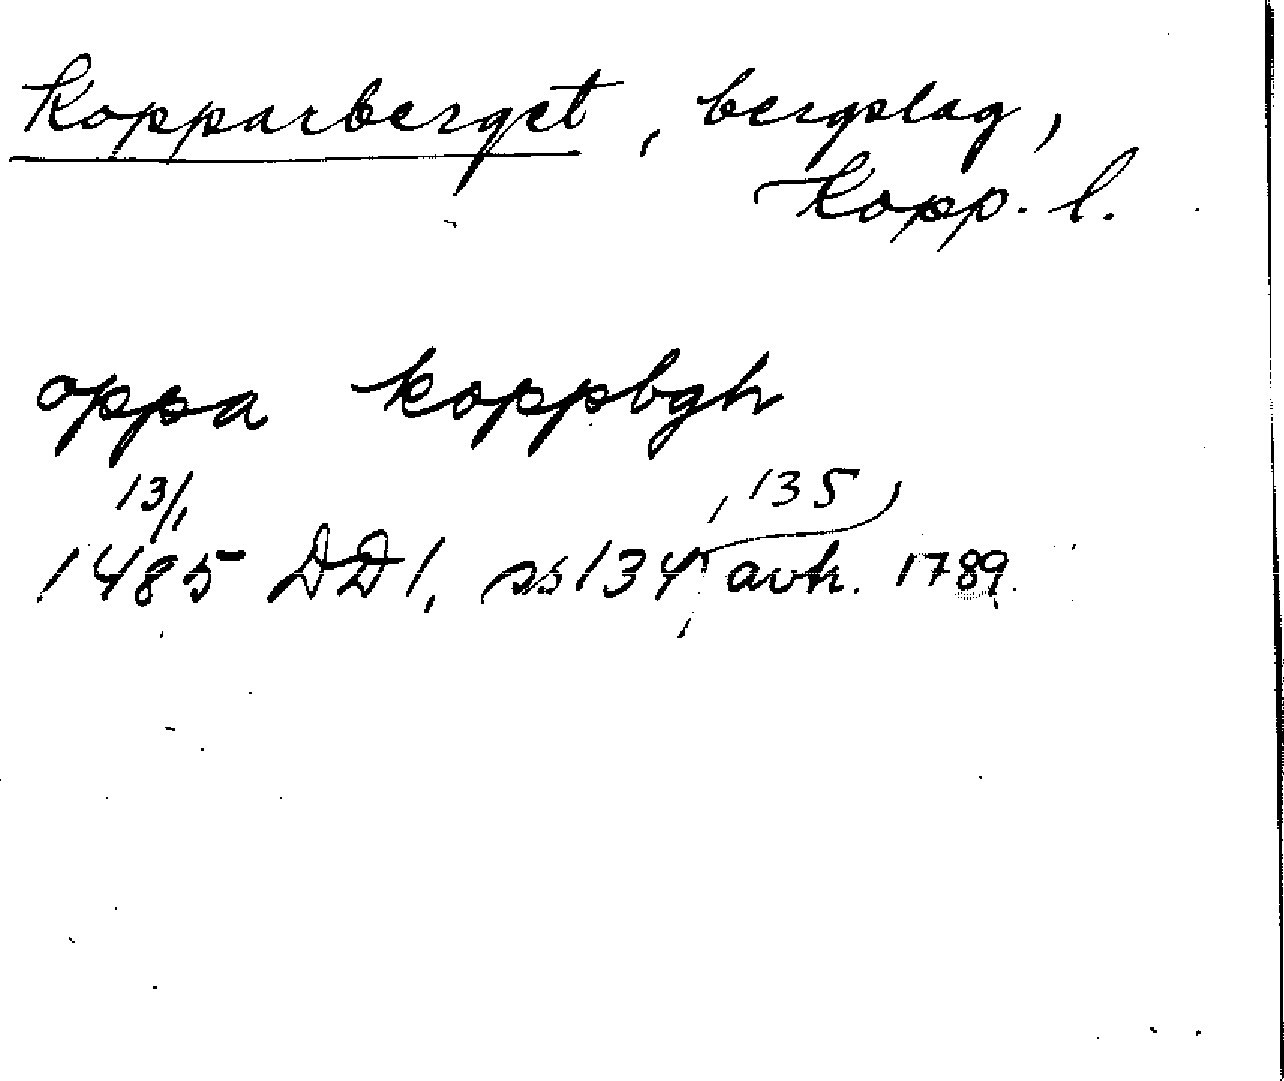 Kopparberget, bergslag,
Kopp. l.
oppa koppbgh
13/1
1485 DD1, ss 134, 135, avk. 1789.